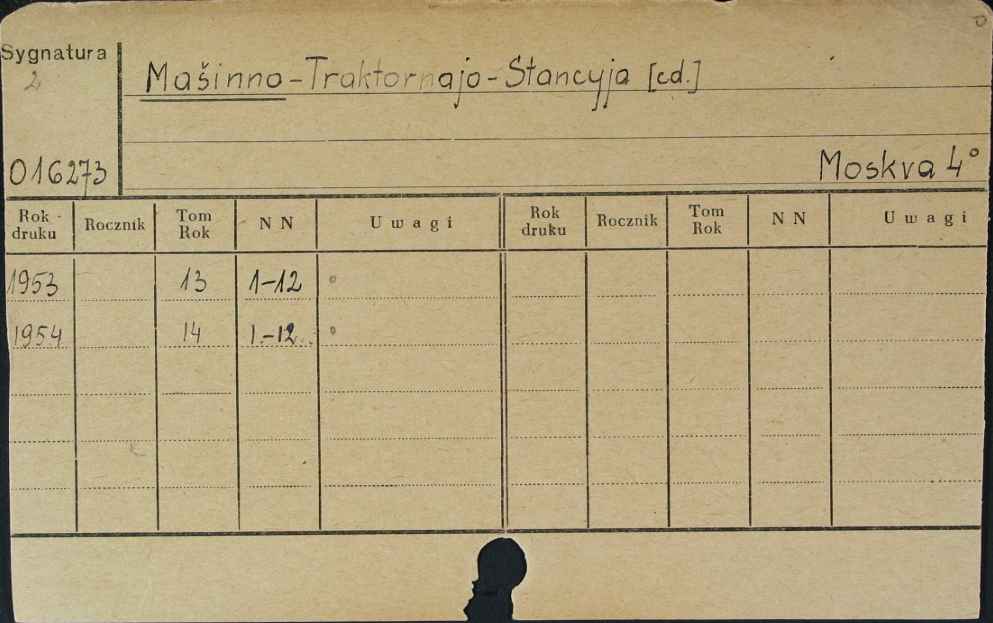 Sygnatura
2
Mašinno-Traktornaja-Stancyja [cd.]
016273
Moskva 4°
Rok druku Rocznik Tom Rok NN Uwagi Rok druku Rocznik Tom Rok NN Uwagi
1953 13 1-12 °
1954 14 1-12 °